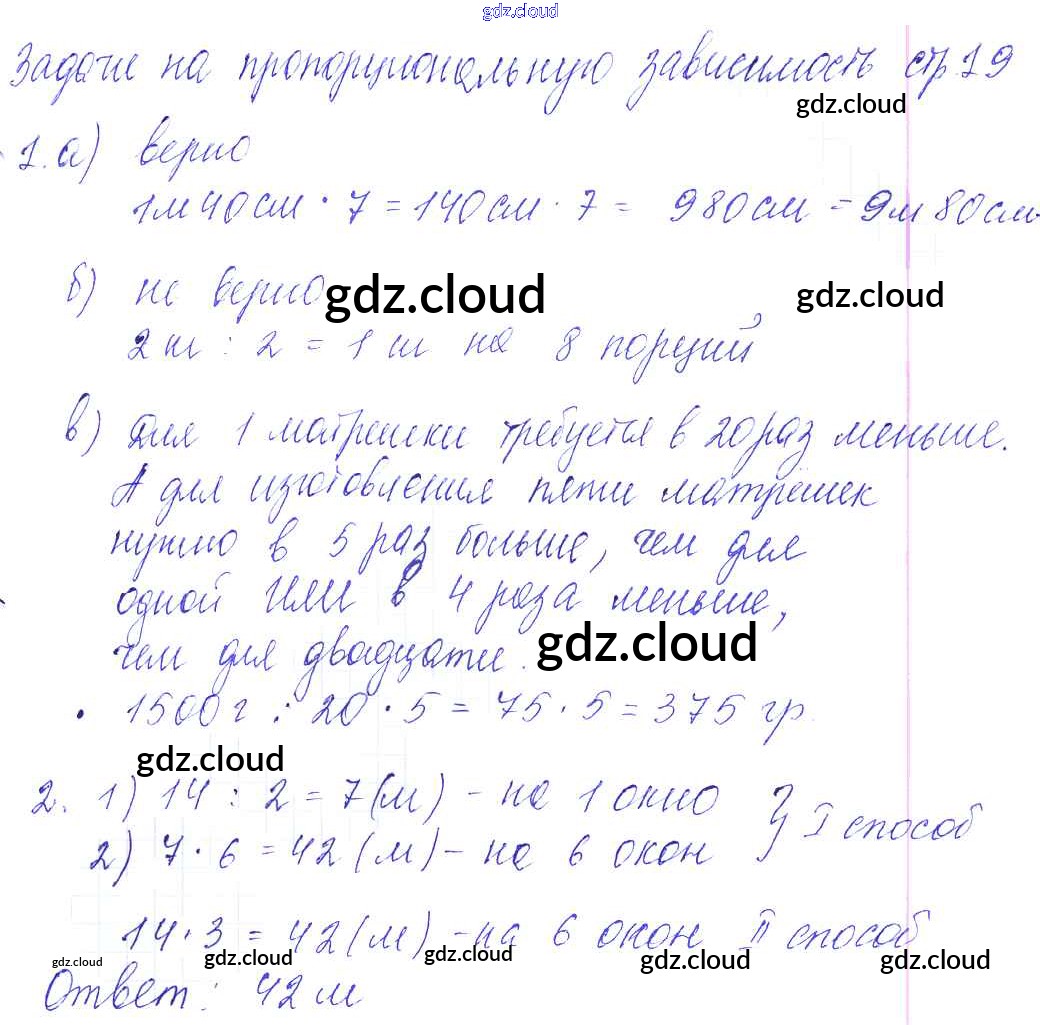 gdz.cloud
Задачи на пропорциональную зависимость стр.19
gdz.cloud
1. а) верно
1м 40см · 7 = 140см · 7 = 980см = 9м 80см
б) не верно,
gdz.cloud gdz.cloud
2 : 2 = 1 на 8 порций
в) Для 1 матрешки требуется в 20 раз меньше.
А для изготовления пяти матрёшек
нужно в 5 раз больше, чем для
одной или в 4 раза меньше,
чем для двадцати.
gdz.cloud
· 1500г : 20 · 5 = 75 · 5 = 375 гр.
gdz.cloud
2. 1) 14 : 2 = 7 (м) - на 1 окно
2) 7 · 6 = 42 (м) - на 6 окон } I способ
14 · 3 = 42 (м) - на 6 окон II способ
gdz.cloud gdz.cloud gdz.cloud gdz.cloud gdz.cloud
Ответ: 42 м